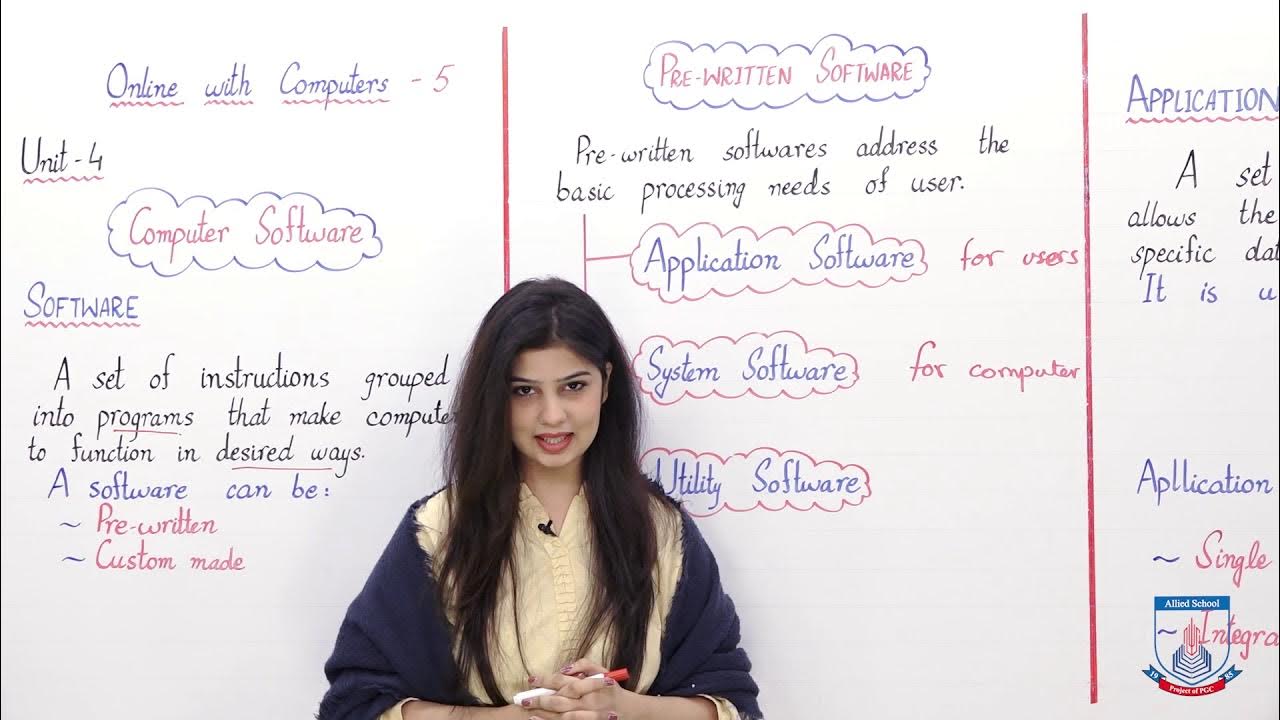 Online with Computers - 5
Unit - 4
Computer Software
SOFTWARE
A set of instructions grouped
into programs that make computer
to function in desired ways.
A software can be:
~ Pre-written
~ Custom made
PRE-WRITTEN SOFTWARE
Pre-written softwares address the
basic processing needs of user.
Application Software for users
System Software for computer
Utility Software
APPLICATION
A set
allows the
specific dat
It is u
Apllication
~ Single
~ Integra
Allied School
19 85
Project of PGC